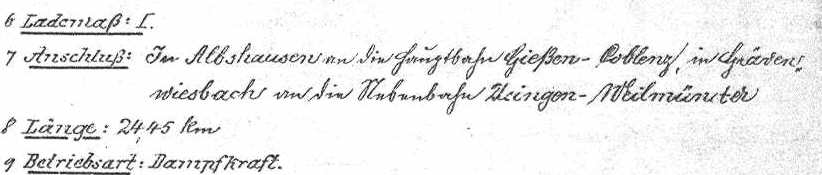 6 Lademaß: I.
7 Anschluß: In Albshausen an die Hauptbahn Gießen-Coblenz, in Gräven-
wiesbach an die Nebenbahn Usingen-Weilmünster
8 Länge: 24,45 km
9 Betriebsart: Dampfkraft.